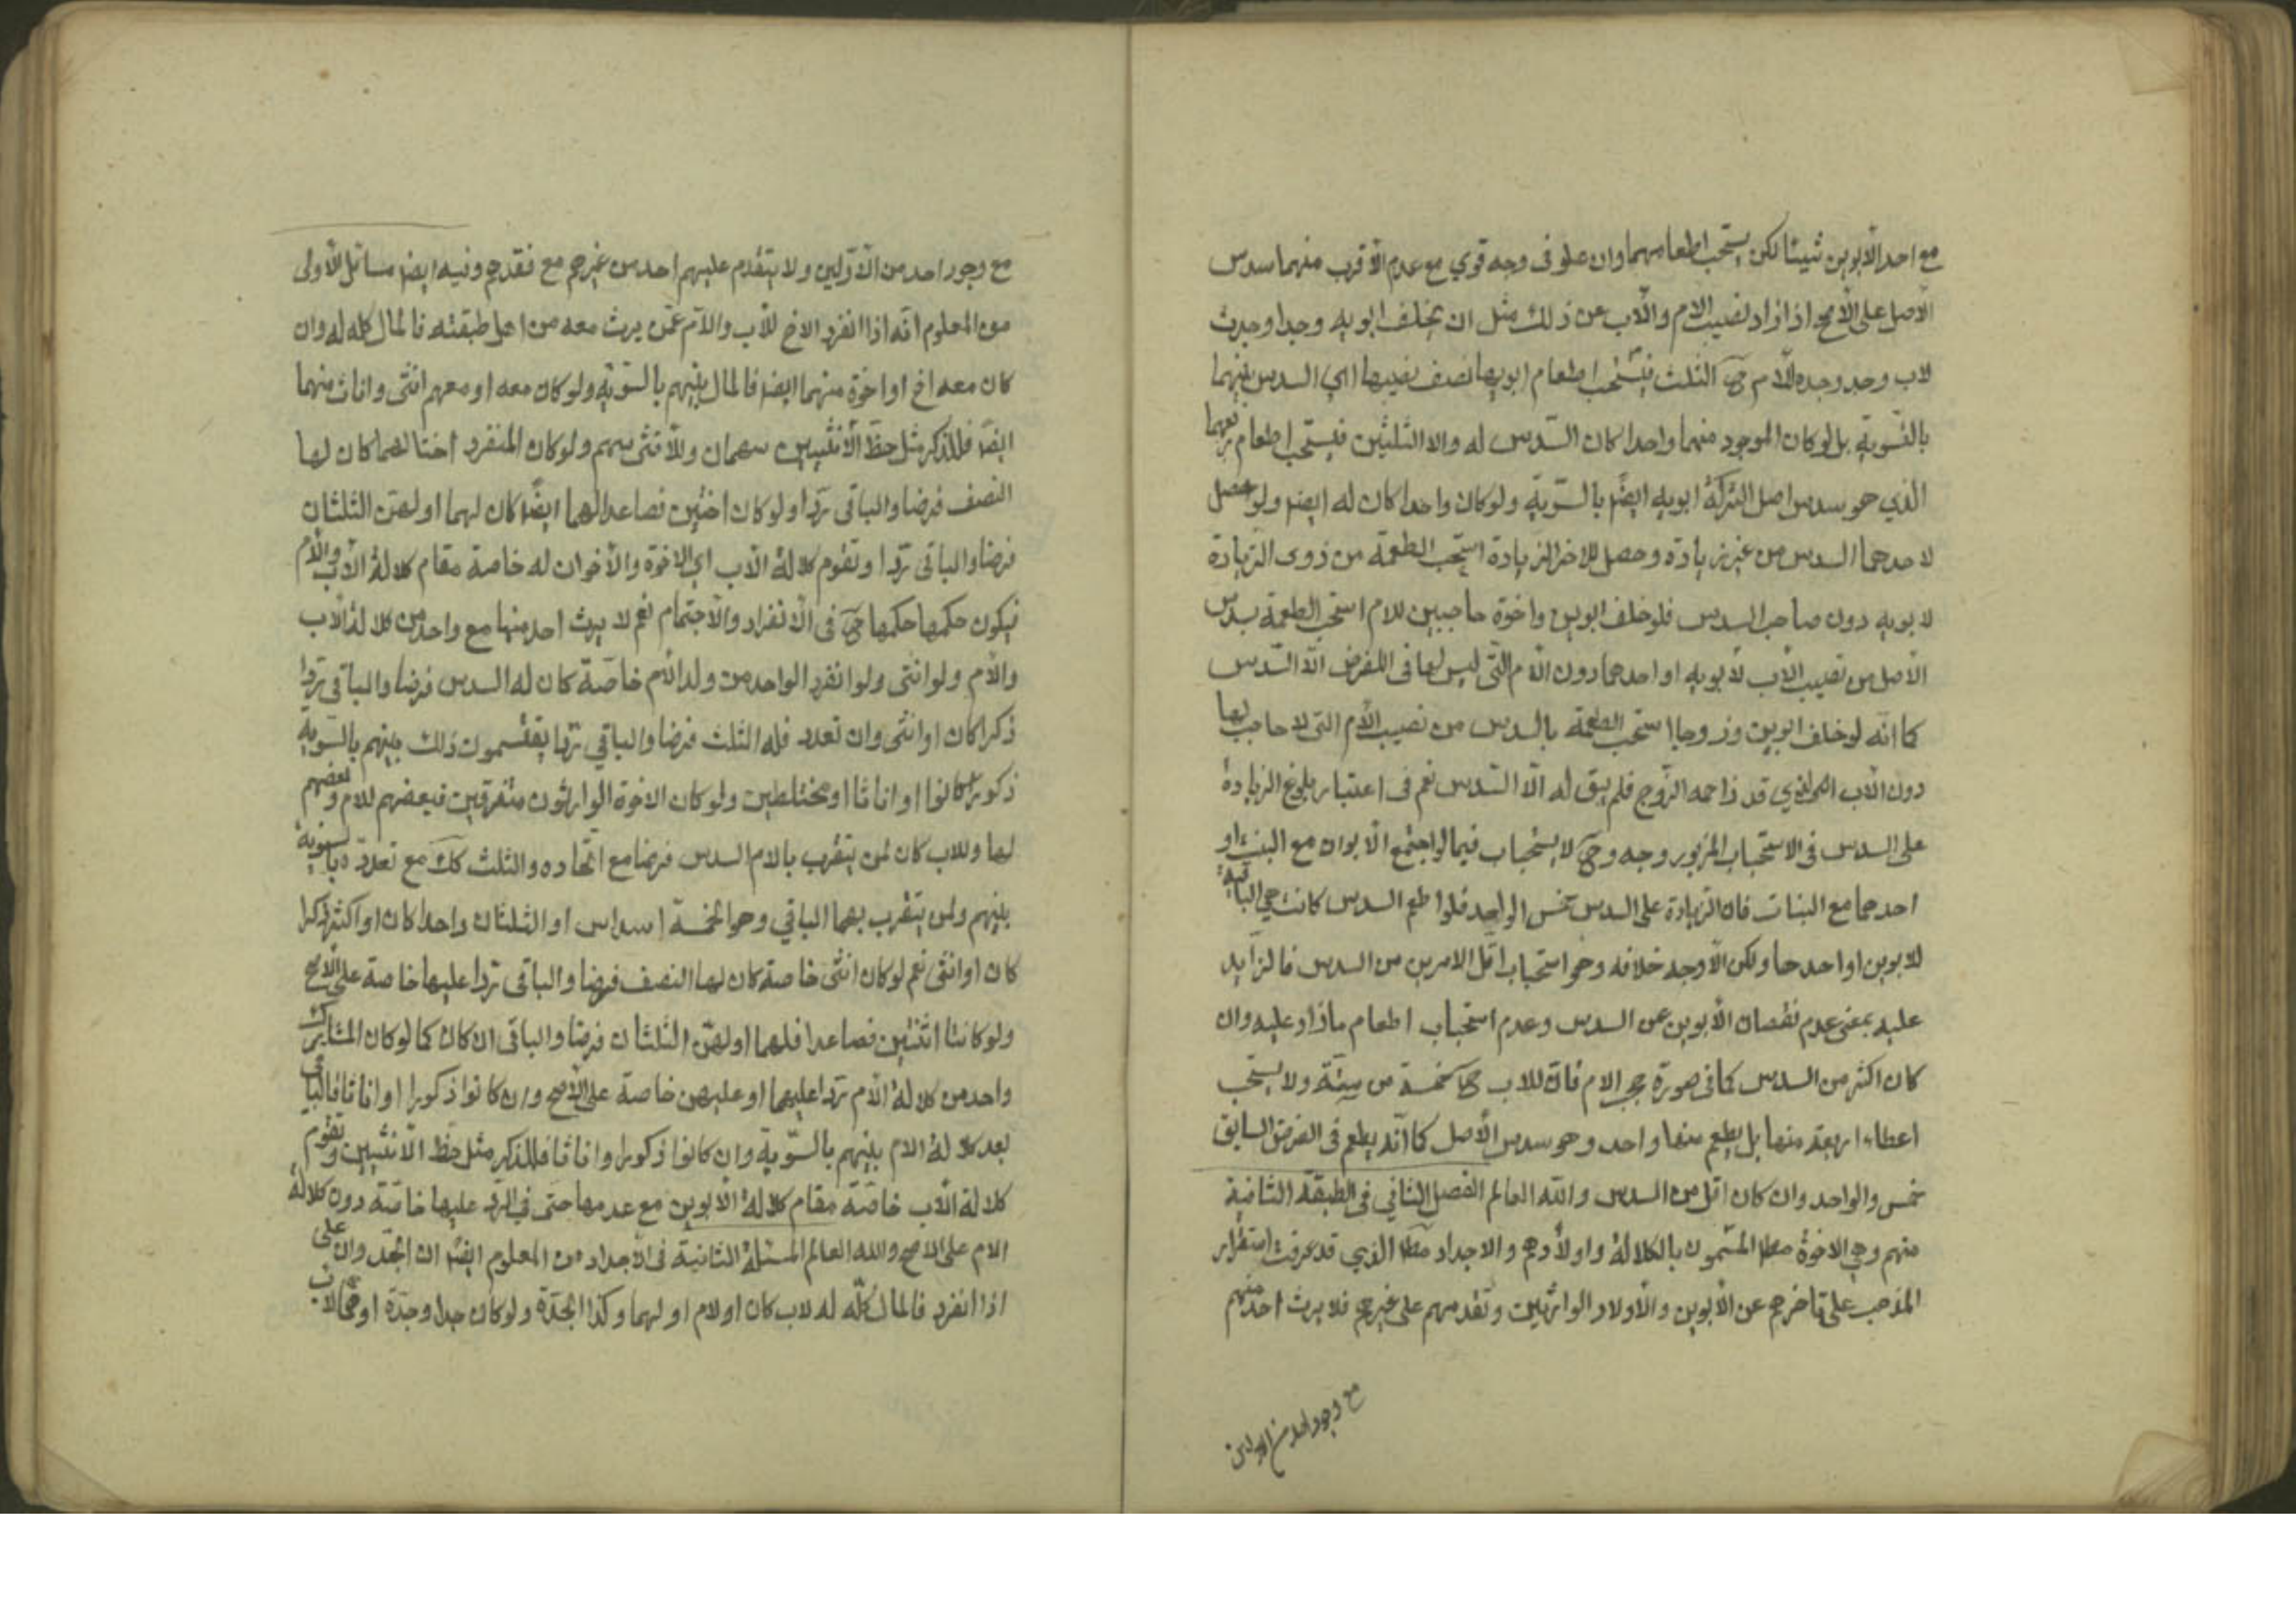 مع احد الأبوين شيئا لكن يستحب اطعامهما وان علو فى وجه قوي مع عدم الأقرب منهما سدس
الأصل على الأصح اذا زاد نصيب الام والأب عن ذلك مثل ان يخلف ابويه وجدا وجدة
لاب وجد وجدة للأم فح الثلث فيستحب اطعام ابويها نصف نصيبها اي السدس بينهما
بالسّوية بل لو كان الموجود منهما واحدا كان السّدس له والا الثلثين فيستحب اطعام
الذي هو سدس اصل التركة ابويه ايضًا بالسّوية ولو كان واحدا كان له ايضا ولو حصل
لاحدهما السدس من غير زيادة وحصل للاخر الزيادة استحب الطعمة من ذوى الزيادة
لابويه دون صاحب السدس فلو خلف ابوين واخوة حاجبين للام استحب الطعمة بسدس
الأصل من نصيب الأب لأبويه او احدهما دون الأم التى ليس لها فى الفرض الّا السّدس
كما انّه لو خلف ابوين وزوجا استحب الطعمة بالسدس من نصيب الأم التى لا حاجب لها
دون الأب الذي قد زاحمه الزّوج فلم يبق له الّا السّدس نعم فى اعتبار بلوغ الزيادة
على السدس فى الاستحباب المزبور وجه وح لا يستحباب فيما لو اجتمع الأبوان مع البنت او
احدهما مع البنات فان الزيادة على السدس خمس الواحد فلو اطعم السدس كانت هي الباقية
للابوين او احدهما ولكن الأوجه خلافه وهو استحباب اقل الامرين من السدس فالزايد
عليه بمعنى عدم نقصان الأبوين عن السدس وعدم استحباب اطعام ما زاد عليه وان
كان اكثر من السدس كما فى صورة حجب الام فان للاب ح خمسة من ستّة ولا يستحب
اعطاء اربعة منها بل يطعم منها واحد وهو سدس الأصل كما انّه يطعم فى الفرض السابق
خمس والواحد وان كان اقل من السدس والله العالم الفصل الثاني فى الطبقة الثانية
منهم وهي الاخوة مطا المسّمون بالكلالة واولادهم والاجداد مطا الذي قد عرفت استقرار
المذهب على تأخرهم عن الأبوين والأولاد الوارثين وتقدمهم على غيرهم فلا يرث احد منهم
مع وجود احد من الاولين
مع وجود احد من الأوّلين ولا يتقدم عليهم احد من غيرهم مع فقدهم وفيه ايضا مسائل الأولى
من المعلوم انّه اذا انفرد الاخ للأب والأم عمّن يرث معه من اهل طبقته فالمال كله له وان
كان معه اخ او اخوة منهما ايضا فالمال بينهم بالسّوية ولو كان معه او معهم انثى واناث منهما
ايضًا فللذكر مثل حظّ الأنثيين سهمان وللأنثى سهم ولو كان المنفرد اختا لهما كان لها
النصف فرضا والباقى ردا ولو كان اختين فصاعدا لهما ايضًا كان لهما او لهنّ الثلثان
فرضا والباقى ردا وتقوم كلالة الأب اي الاخوة والأخوان له خاصة مقام كلالة الأب والأم
فيكون حكمها حكمها ح فى الانفراد والأجتماع نعم لا يرث احد منها مع واحد من كلالة الأب
والأم ولو انثى ولو انفرد الواحد من ولد الأم خاصّة كان له السدس فرضا والباقى ردا
ذكرا كان او انثى وان تعدد فله الثلث فرضا والباقي ردا يقتسمون ذلك بينهم بالسّوية
ذكورا كانوا او اناثا او مختلطين ولو كان الاخوة الوارثون متفرقين فبعضهم للام وبعضهم
لهما وللاب كان لمن يتقرب بالام السدس فرضا مع اتّحاده والثلث كك مع تعدده بالسّوية
بينهم ولمن يتقرب بهما الباقي وهو الخمسة اسداس او الثلثان واحدا كان او اكثر ذكرا
كان او انثى نعم لو كان انثى خاصة كان لها النصف فرضا والباقى ردا عليها خاصة على الأصح
ولو كانتا اثنتين فصاعدا فلهما او لهنّ الثلثان فرضا والباقى ان كان كما لو كان المشارك
واحد من كلالة الأم ردا عليهما او عليهن خاصة على الأصح وان كانوا ذكورا او اناثا فالباقى
بعد كلالة الام بينهم بالسّوية وان كانوا ذكورا واناثا فللذكر مثل حظ الأنثيين وتقوم
كلالة الأب خاصّة مقام كلالة الأبوين مع عدمها حتى في الرد عليها خاصّة دون كلالة
الام على الاصح والله العالم المسئلة الثانية فى الأجداد من المعلوم ايضًا ان الجدّ وان على
اذا انفرد فالمال كلّه له لاب كان او لام او لهما وكذا الجدّة ولو كان جدا وجدّة او هما لاب